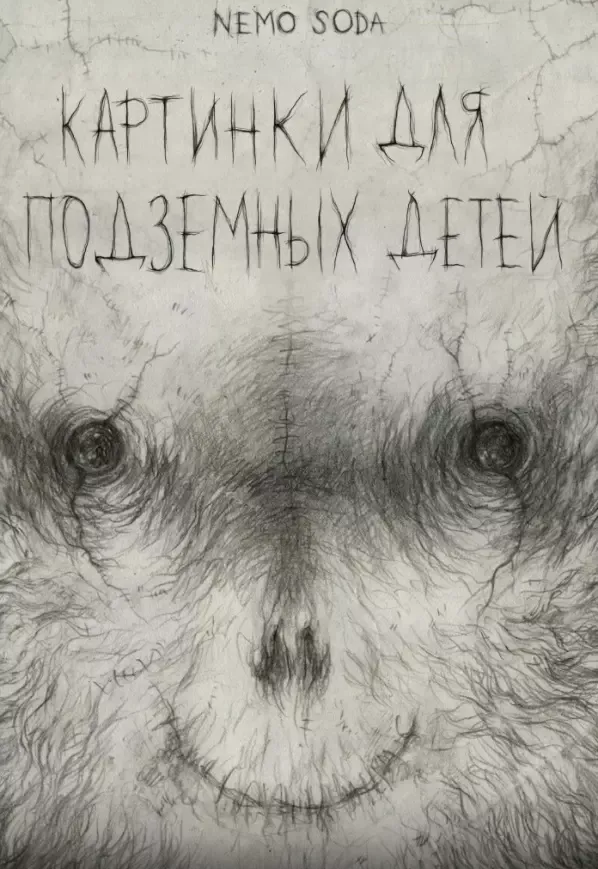 NEMO SODA
КАРТИНКИ ДЛЯ
ПОДЗЕМНЫХ ДЕТЕЙ